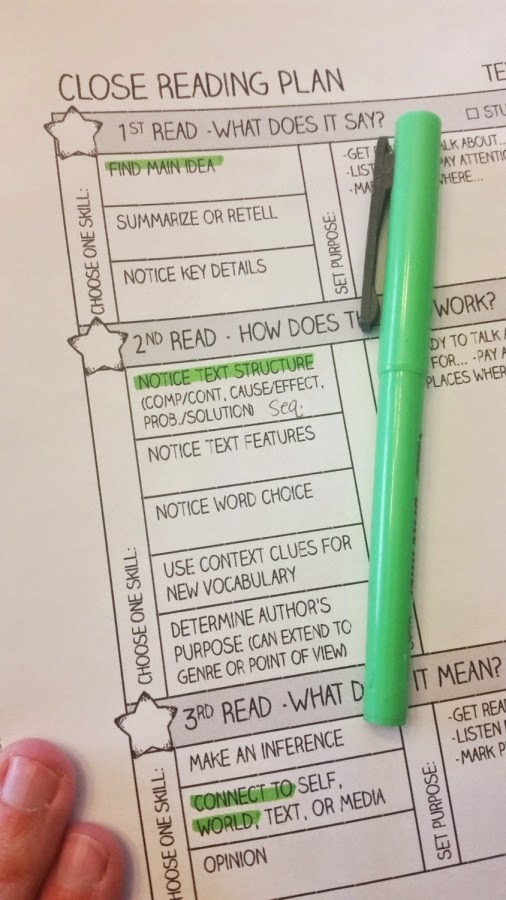 CLOSE READING PLAN
1ST READ -WHAT DOES IT SAY?
CHOOSE ONE SKILL:
FIND MAIN IDEA
SUMMARIZE OR RETELL
NOTICE KEY DETAILS
SET PURPOSE:
-GET
ALK ABOUT...
PAY ATTENTIO
HERE...
2ND READ - HOW DOES
WORK?
CHOOSE ONE SKILL:
NOTICE TEXT STRUCTURE
(COMP/CONT, CAUSE/EFFECT,
PROB./SOLUTION) Seq.
NOTICE TEXT FEATURES
NOTICE WORD CHOICE
USE CONTEXT CLUES FOR
NEW VOCABULARY
DETERMINE AUTHOR'S
PURPOSE (CAN EXTEND TO
GENRE OR POINT OF VIEW)
DY TO TALK A
FOR... -PAY A
PLACES WHER
3RD READ -WHAT D
IT MEAN?
HOOSE ONE SKILL:
MAKE AN INFERENCE
CONNECT TO SELF,
WORLD, TEXT, OR MEDIA
OPINION
SET PURPOSE:
-GET REA
-LISTEN
-MARK P